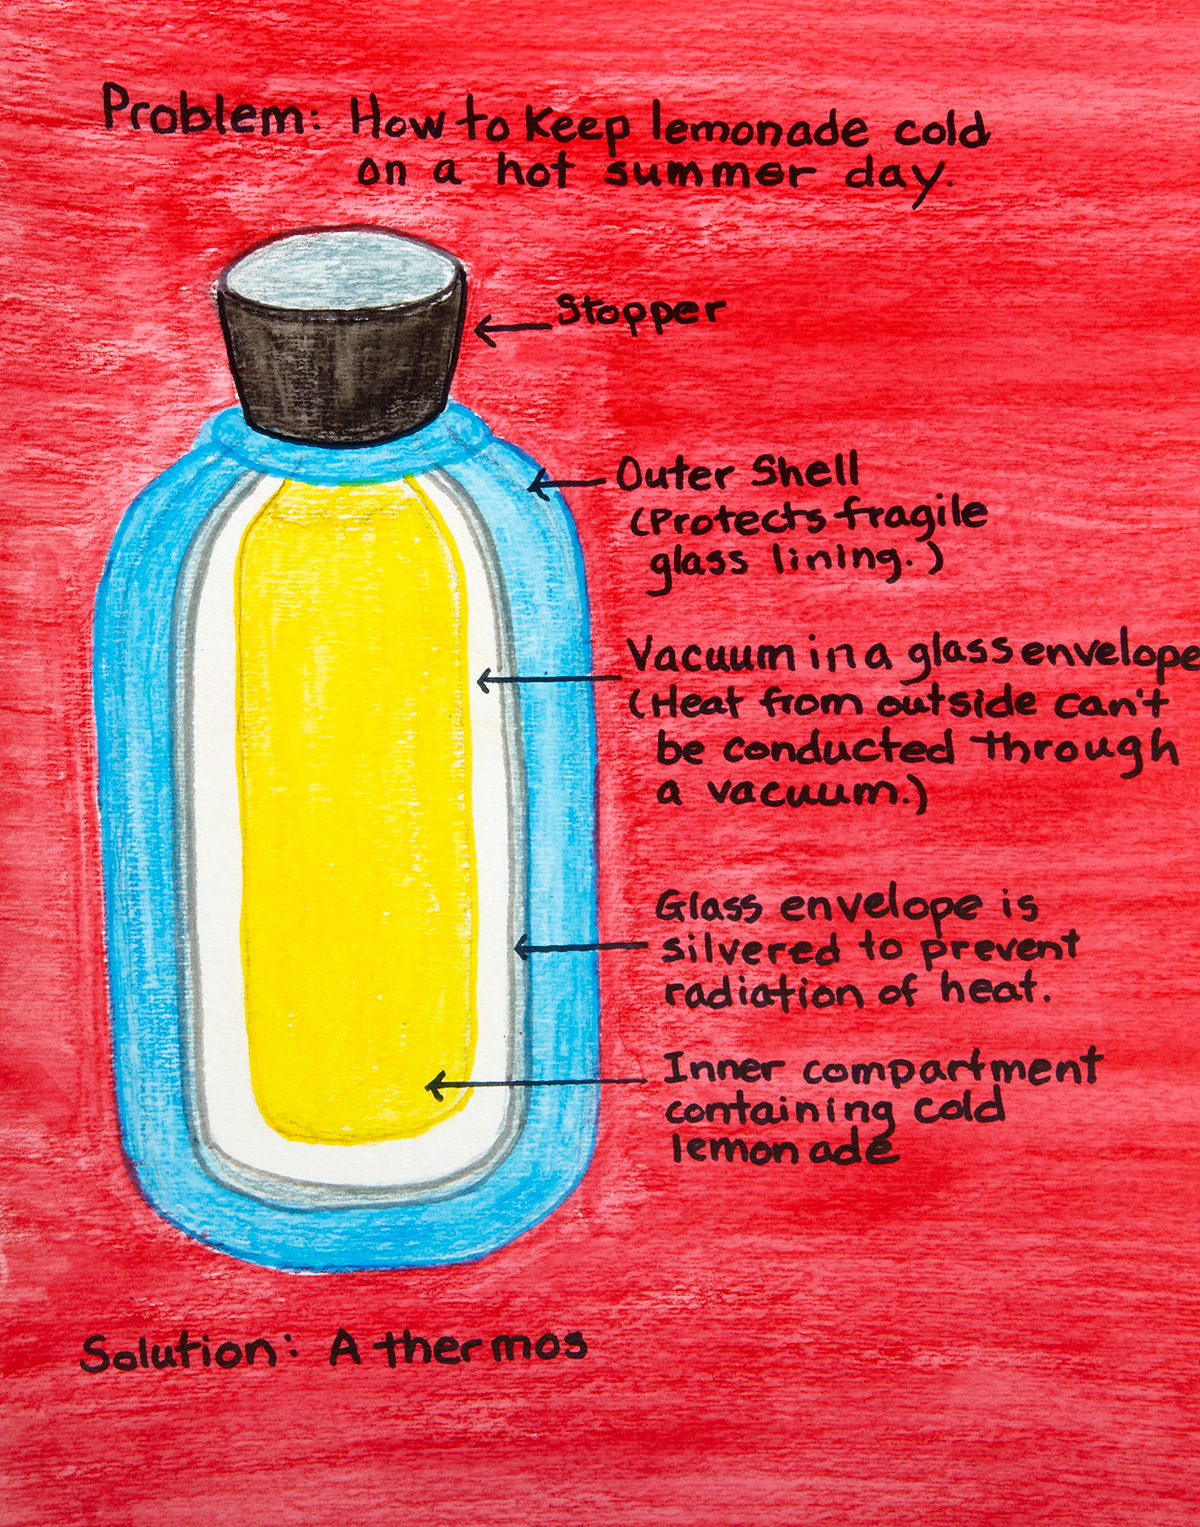 Problem: How to Keep lemonade cold
on a hot summer day.
Stopper
Outer Shell
(Protects fragile
glass lining.)
Vacuum in a glass envelope
(Heat from outside can't
be conducted through
a vacuum.)
Glass envelope is
silvered to prevent
radiation of heat.
Inner compartment
containing cold
lemonade
Solution: A thermos